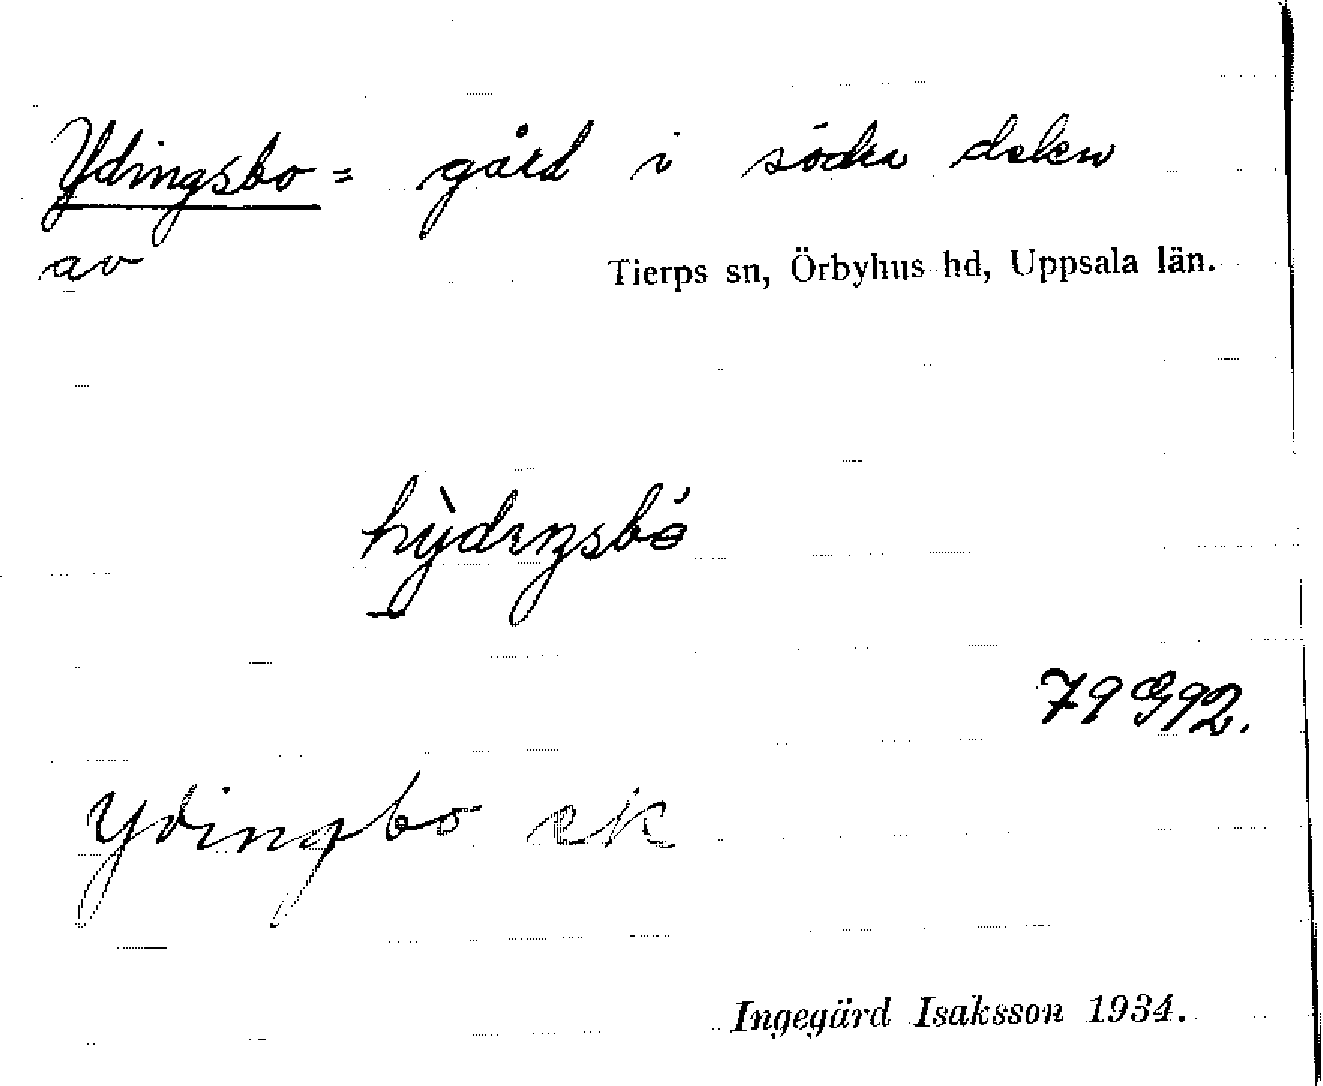 Ydingsbo = gård i södra delen
av Tierps sn, Örbyhus hd, Uppsala län.
hy̍dıŋsbó
79 G 92.
Ydingbo ek
Ingegärd Isaksson 1934.